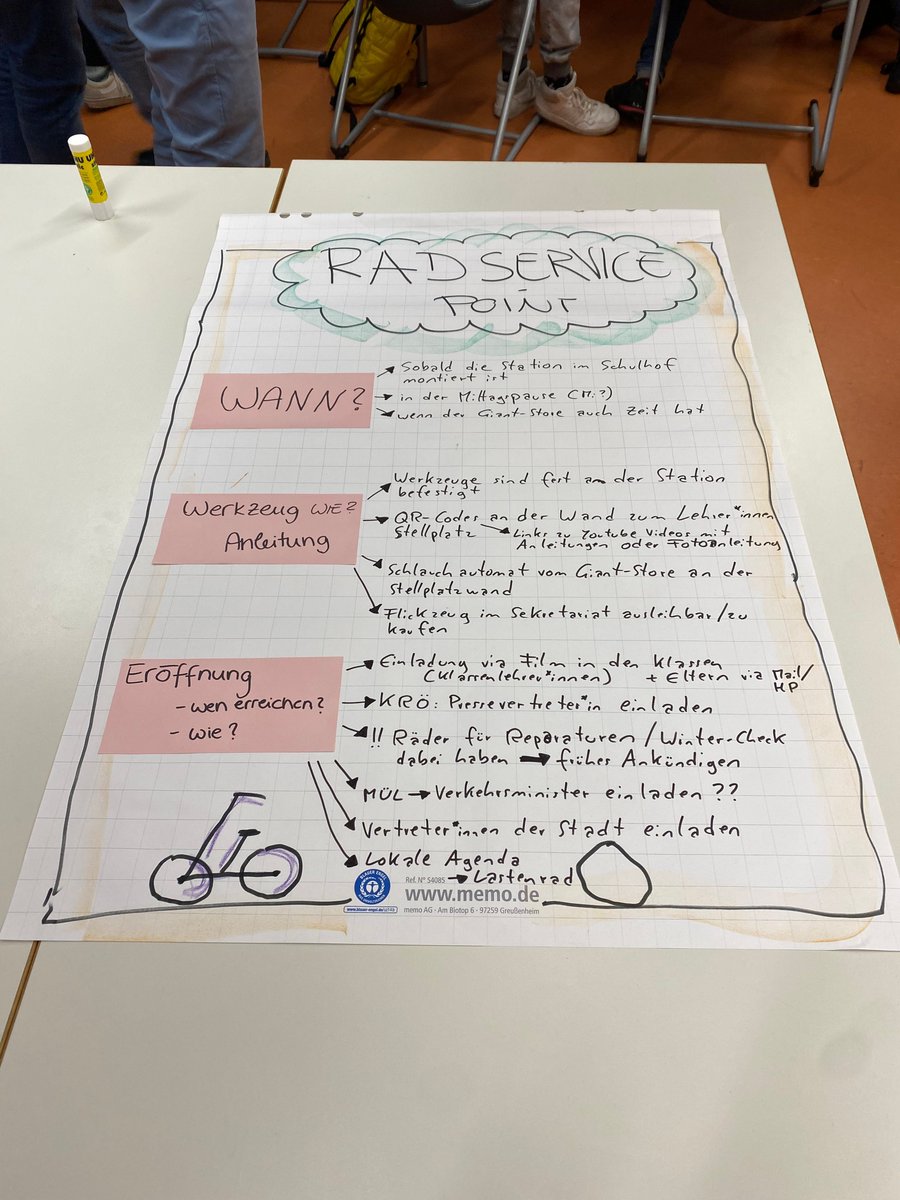 RADSERVICE
POINT
WANN?
→ Sobald die Station im Schulhof
montiert ist
→ in der Mittagspause (Mi?)
→ wenn der Giant-Store auch Zeit hat
Werkzeug WIE?
Anleitung
→ Werkzeuge sind fest an der Station
befestigt
→ QR-Codes an der Wand zum Lehrer*innen
Stellplatz → Links zu Youtube Videos mit
Anleitungen oder Fotoanleitung
→ Schlauchautomat vom Giant-Store an der
Stellplatzwand
→ Flickzeug im Sekretariat ausleihbar/zu
kaufen
Eröffnung
- wen erreichen?
- wie?
→ Einladung via Film in den Klassen
(Klassenlehrer*innen) + Eltern via Mail/
HP
→ KRÖ: Pressevertreter*in einladen
→ !! Räder für Reparaturen/Winter-Check
dabei haben → frühes Ankündigen
→ MÜL → Verkehrsminister einladen??
→ Vertreter*innen der Stadt einladen
→ Lokale Agenda
→ Lastenrad
BLAUER ENGEL
www.blauer-engel.de/uz14b
Ref. N° 54085
www.memo.de
memo AG · Am Biotop 6 · 97259 Greußenheim
UHU